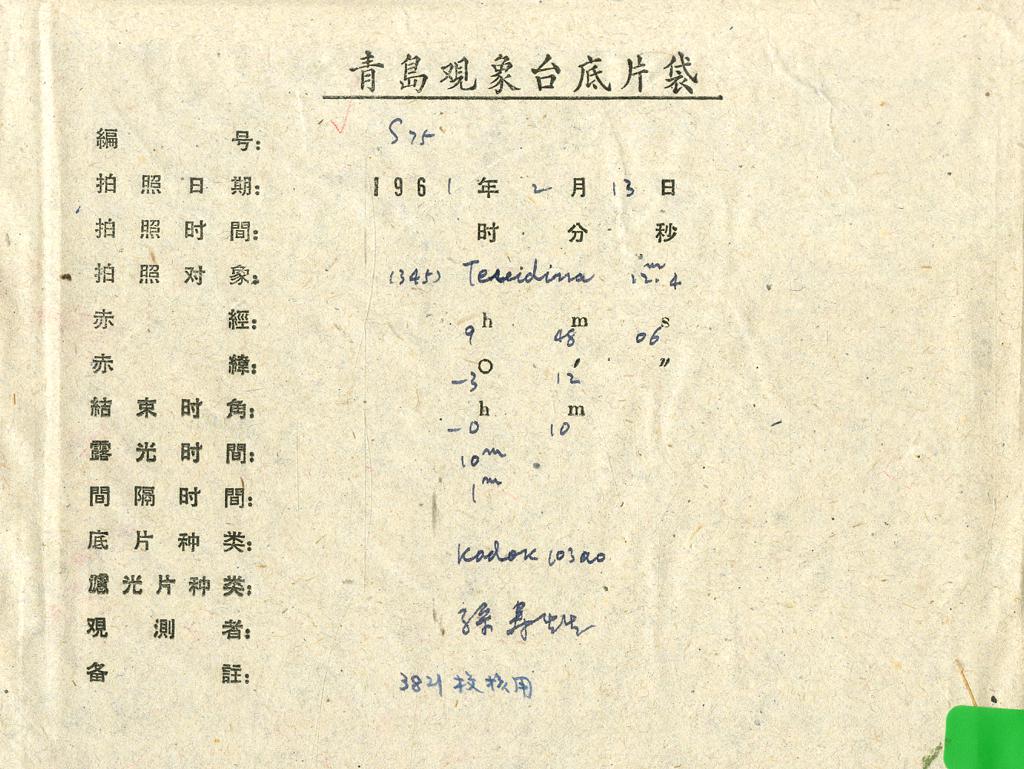 青島观象台底片袋
編号: S75
拍照日期: 1961年2月13日
拍照时間: 时 分 秒
拍照对象: (345) Teseidina 12.ᵐ4
赤經: 9h 48m 06s
赤緯: -3° 12′ ″
結束时角: -0h 10m
露光时間: 10ᵐ
間隔时間: 1ᵐ
底片种类: Kodak 103ao
濾光片种类:
观測者: 孫寿
备註: 3821校核用